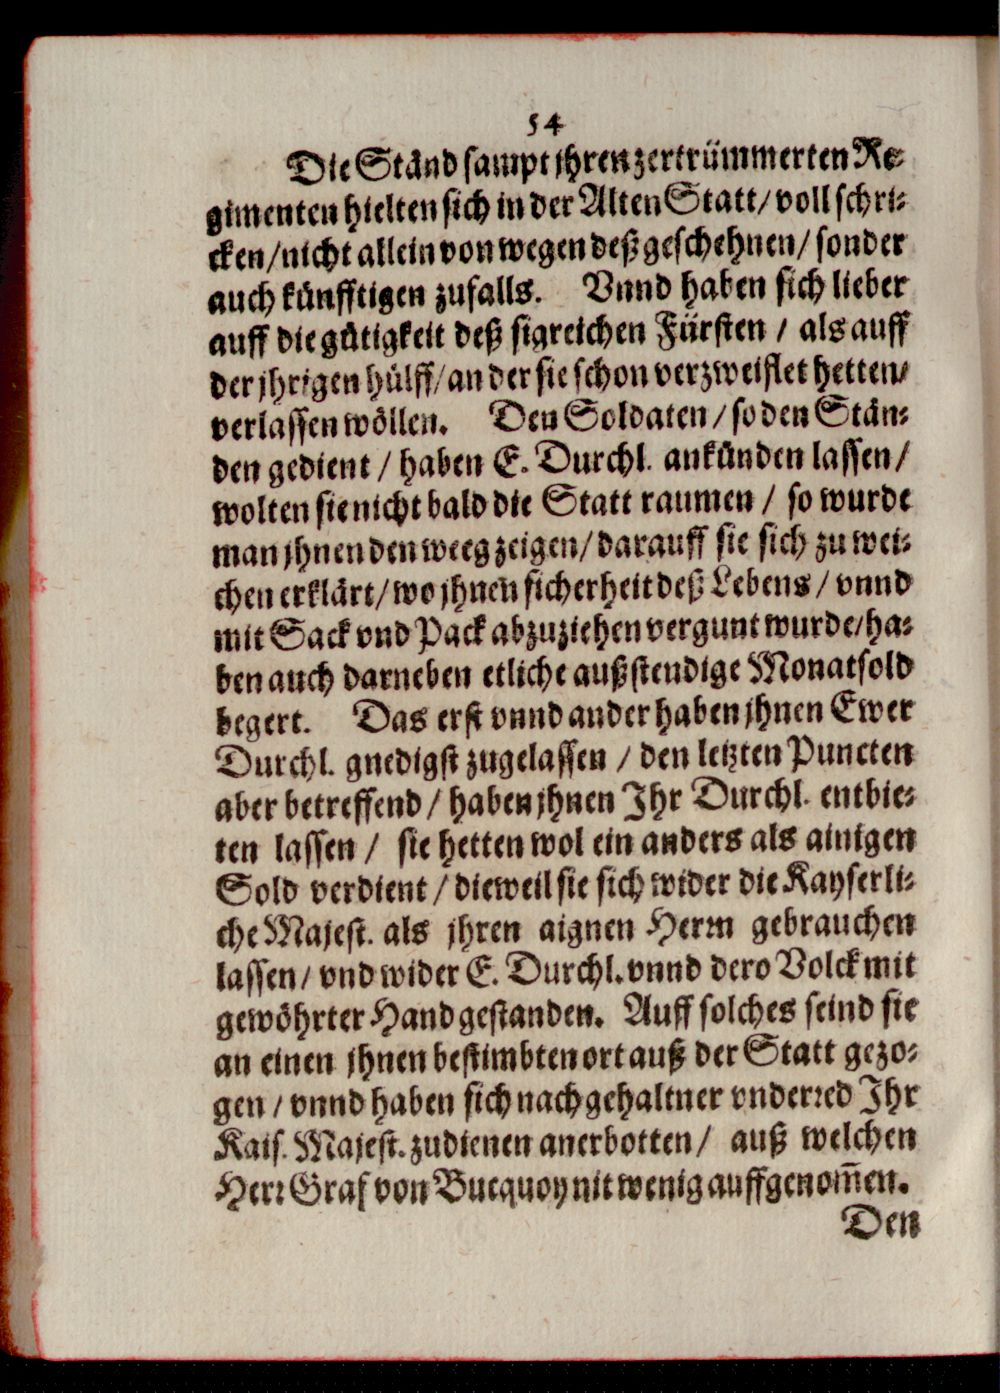 54
Die Ständ sampt jhren zertrümmerten Re-
gimenten hielten sich in der Alten Statt/ voll schri-
cken/ nicht allein von wegen deß geschehnen/ sonder
auch künfftigen zufalls. Vnnd haben sich lieber
auff die gütigkeit deß sigreichen Fürsten / als auff
der jhrigen hülff/ an der sie schon verzweiflet hetten/
verlassen wöllen. Den Soldaten / so den Stän-
den gedient / haben E. Durchl. ankünden lassen /
wolten sie nicht bald die Statt raumen / so wurde
man jhnen den weeg zeigen/ darauff sie sich zu wei-
chen erklärt/ wo jhnen sicherheit deß Lebens / vnnd
mit Sack vnd Pack abzuziehen vergunt wurde/ ha-
ben auch darneben etliche außstendige Monatsold
begert. Das erst vnnd ander haben jhnen Ewer
Durchl. gnedigst zugelassen / den letzten Puncten
aber betreffend / haben jhnen Ihr Durchl. entbie-
ten lassen / sie hetten wol ein anders als ainigen
Sold verdient / dieweil sie sich wider die Kayserli-
che Majest. als jhren aignen Herrn gebrauchen
lassen / vnd wider E. Durchl. vnnd dero Volck mit
gewöhrter Hand gestanden. Auff solches seind sie
an einen jhnen bestimbten ort auß der Statt gezo-
gen / vnnd haben sich nach gehaltner vnderred Ihr
Kais. Majest. zudienen anerbotten / auß welchen
Herr Graf von Bucquoy nit wenig auffgenom̃en.
Den